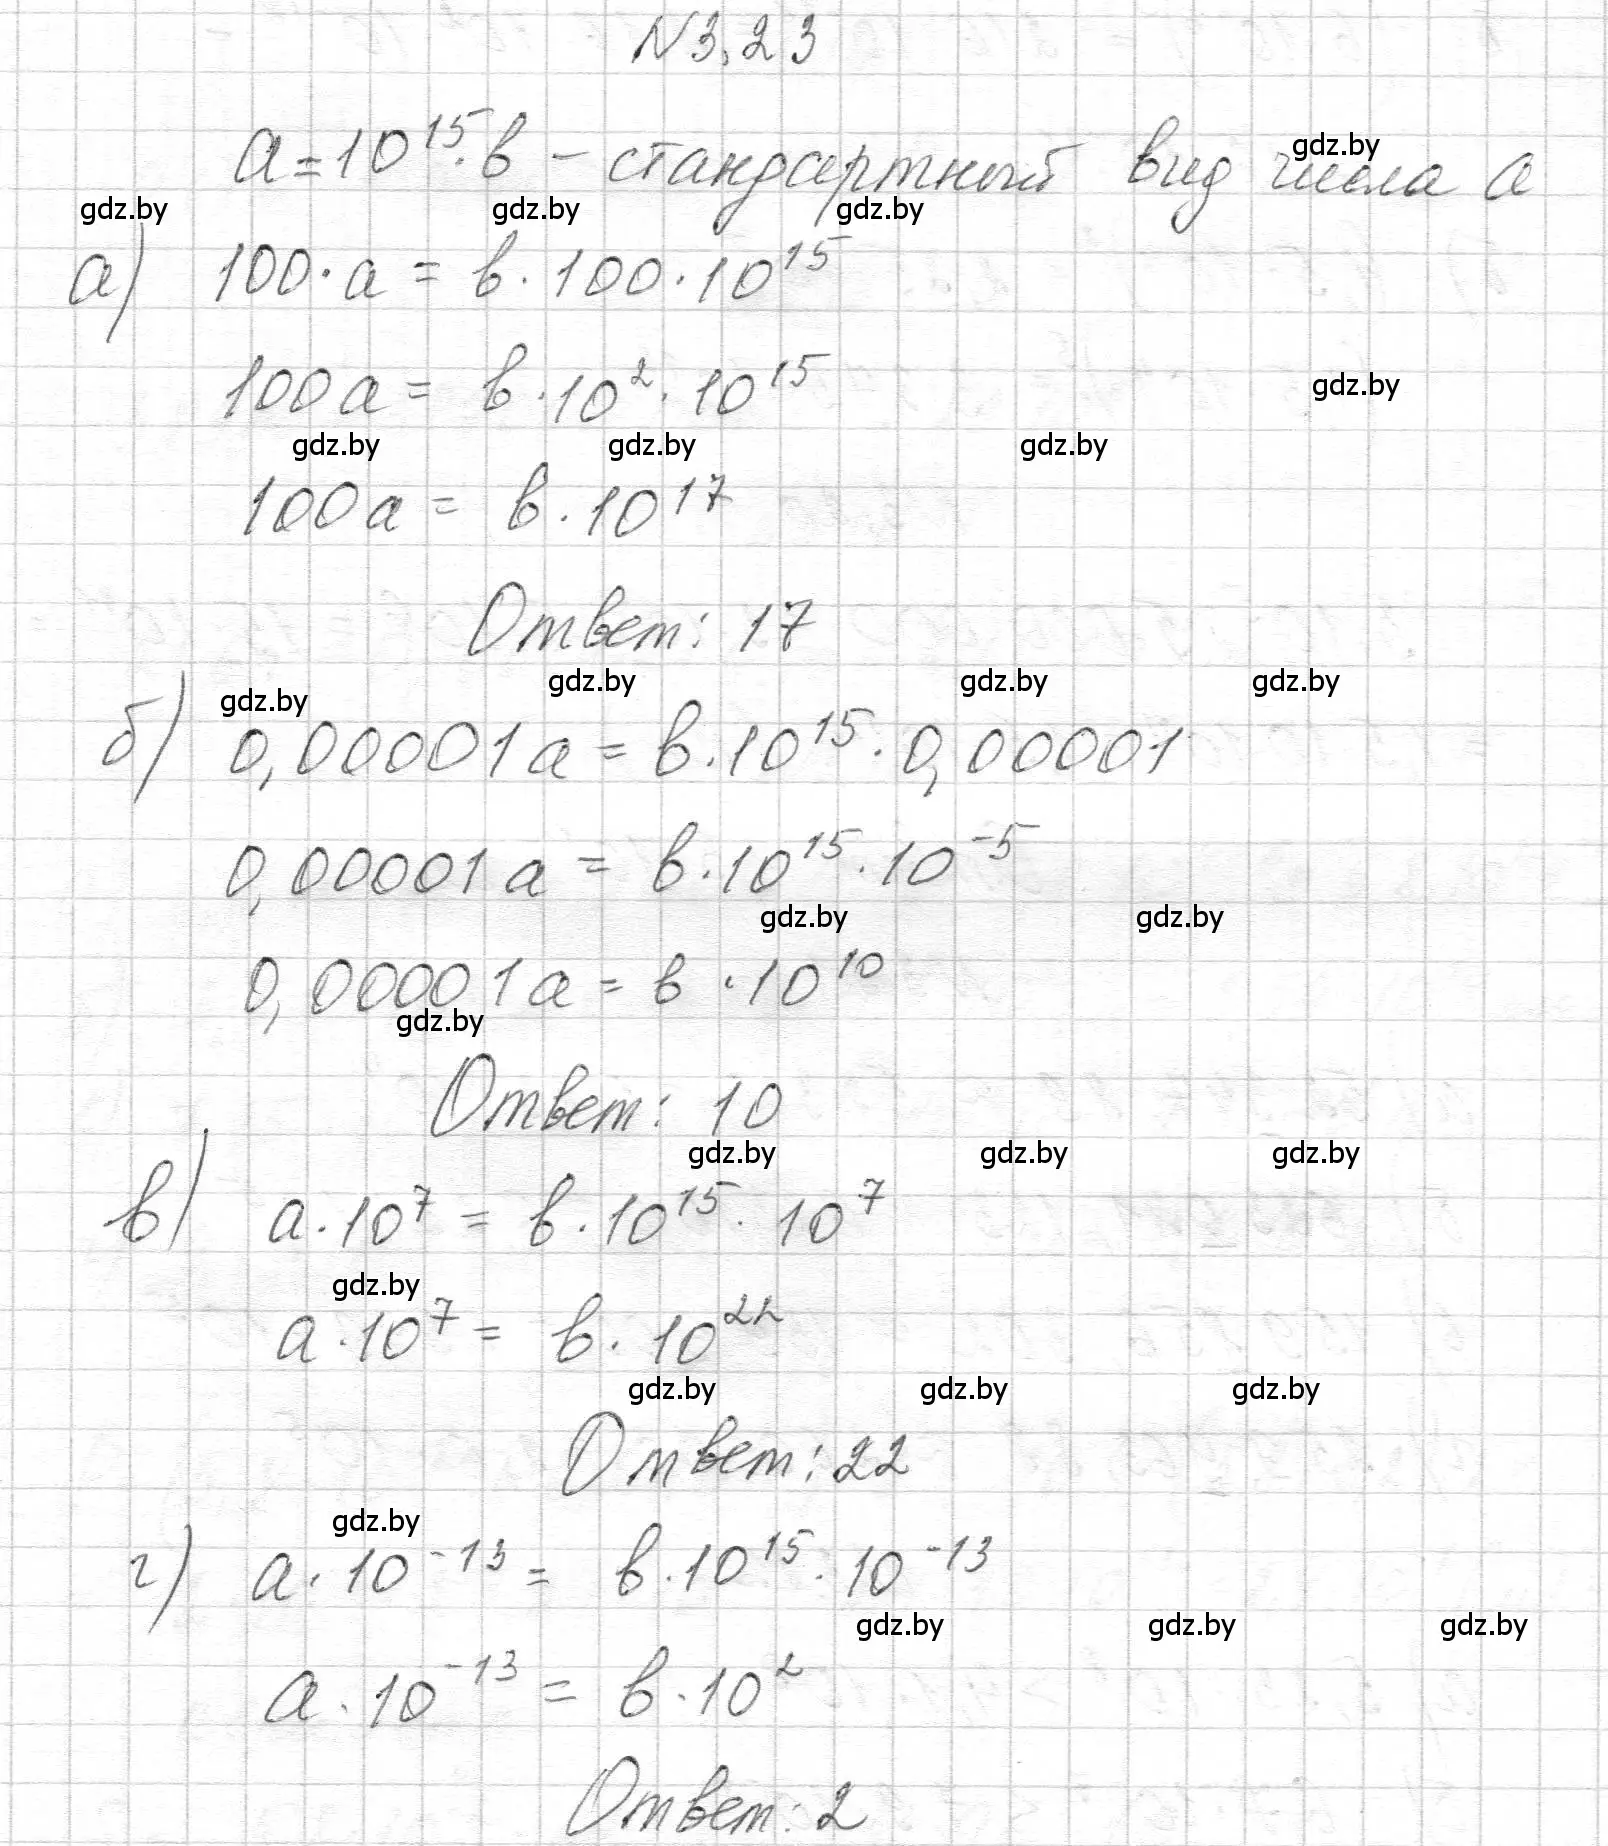 N3.23
a = 10¹⁵ · b – стандартный вид числа a
gdz.by
gdz.by gdz.by gdz.by
а) 100 · a = b · 100 · 10¹⁵
100a = b · 10² · 10¹⁵
gdz.by
gdz.by gdz.by gdz.by
100a = b · 10¹⁷
Ответ: 17
gdz.by gdz.by gdz.by gdz.by
б) 0,00001a = b · 10¹⁵ · 0,00001
0,00001a = b · 10¹⁵ · 10⁻⁵
gdz.by gdz.by
0,00001a = b · 10¹⁰
gdz.by
Ответ: 10
gdz.by gdz.by gdz.by
в) a · 10⁷ = b · 10¹⁵ · 10⁷
gdz.by
a · 10⁷ = b · 10²²
gdz.by gdz.by gdz.by
Ответ: 22
gdz.by
г) a · 10⁻¹³ = b · 10¹⁵ · 10⁻¹³
gdz.by gdz.by gdz.by
a · 10⁻¹³ = b · 10²
Ответ: 2